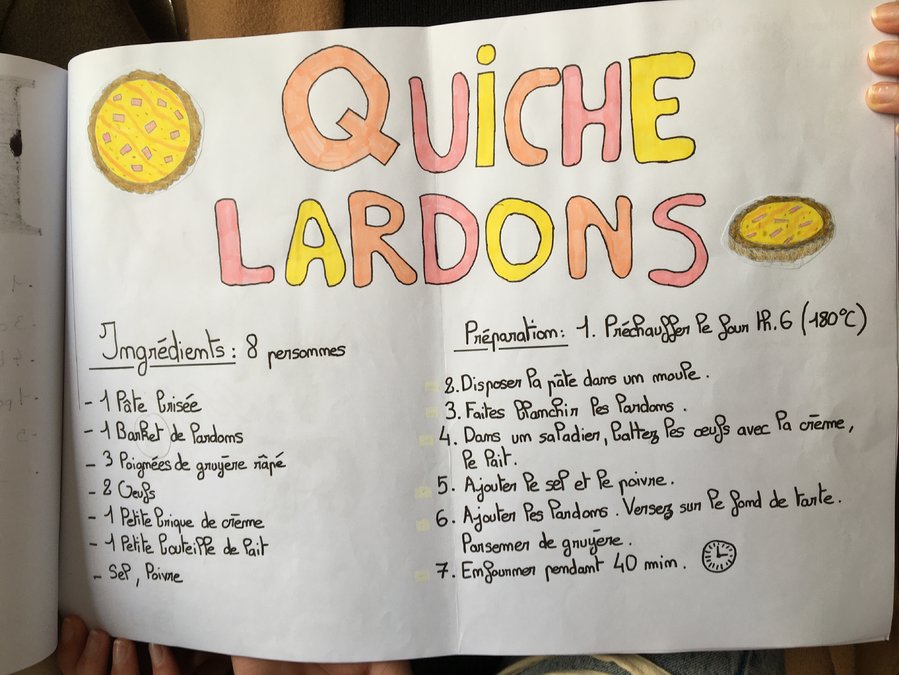 QUiCHE
LARDONS
Ingrédients : 8 personnes
- 1 Pâte brisée
- 1 Barket de lardons
- 3 Poignées de gruyère râpé
- 2 Oeufs
- 1 Petite brique de crème
- 1 Petite bouteille de lait
- Sel, Poivre
Préparation : 1. Préchauffer le four th.6 (180°C)
2. Disposer la pâte dans un moule.
3. Faites blanchir les lardons.
4. Dans un saladier, battez les œufs avec la crème,
le lait.
5. Ajouter le sel et le poivre.
6. Ajouter les lardons. Versez sur le fond de tarte.
Parsemer de gruyère.
7. Enfourner pendant 40 min.